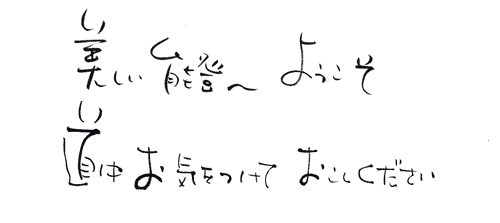 美しい能登へ ようこそ
道中 お気をつけて おこしください